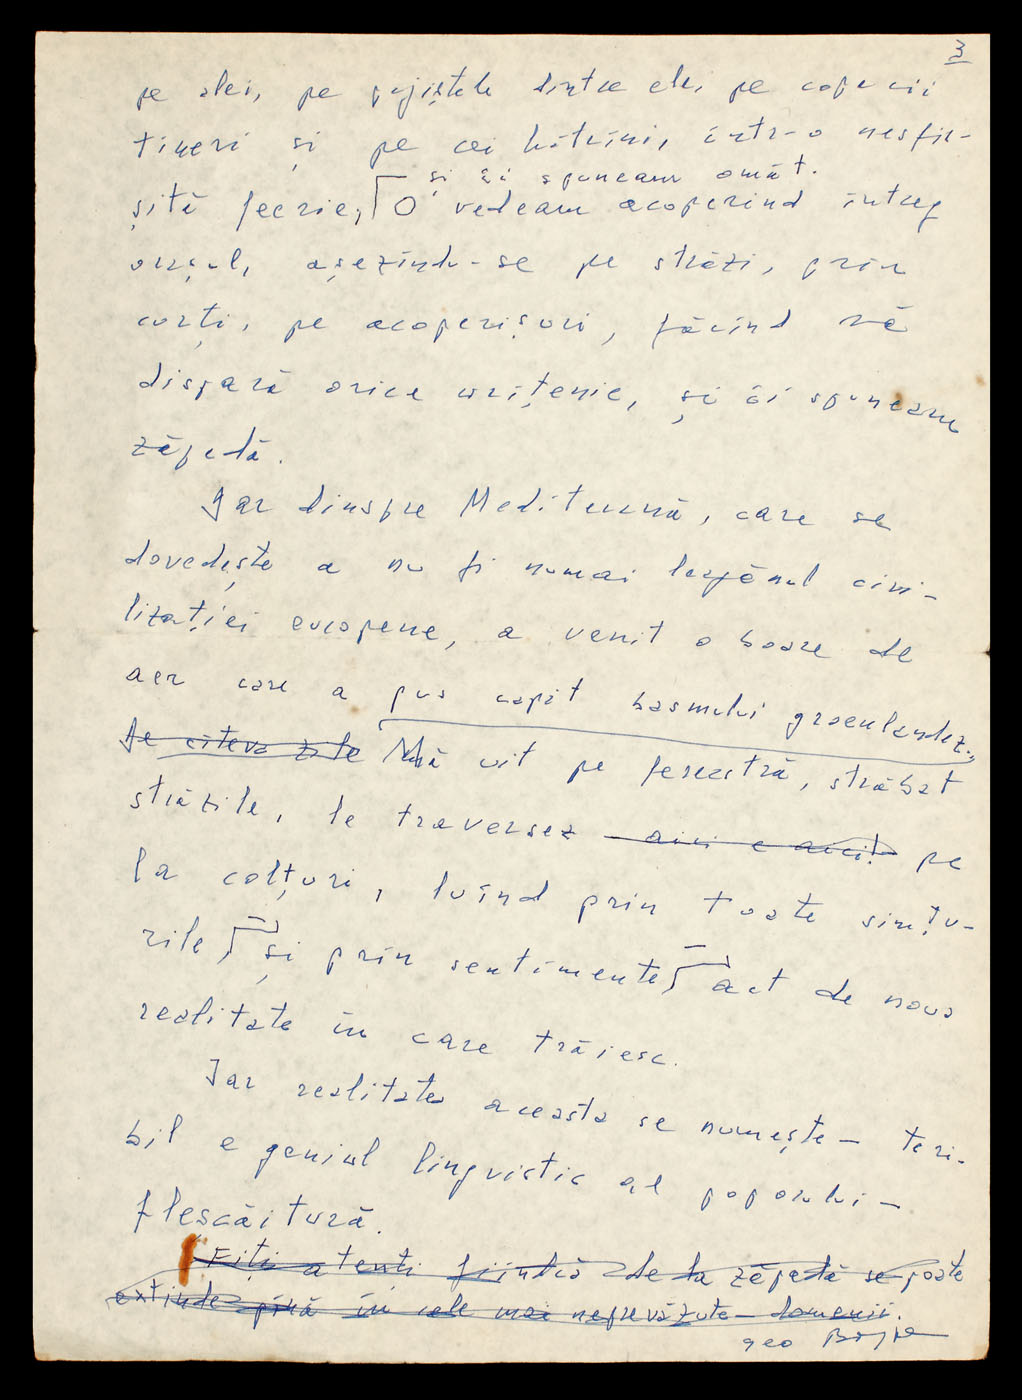 3
pe alei, pe pajiștele dintre ele, pe copacii
tineri și pe cei bătrîni, într-o nesfîr-
și îi spuneam omăt.
șită feerie, O vedeam acoperind întreg
orașul, așezîndu-se pe străzi, prin
curți, pe acoperișuri, făcînd să
dispară orice urîțenie, și îi spuneam
zăpadă.
Iar dinspre Mediterană, care se
dovedește a nu fi numai leagănul civi-
lizației europene, a venit o boare de
aer care a pus capăt basmului groenlandez.
De cîteva zile Mă uit pe fereastră, străbat
străzile, le traversez aici e aici! pe
la colțuri, luînd prin toate simțu-
rile, și prin sentimente, act de noua
realitate în care trăiesc.
Iar realitatea aceasta se numește – teri-
bil e geniul lingvistic al poporului –
fleșcăitură.
Fiți atenți fiindcă de la zăpadă se poate
extinde pînă în cele mai neprevăzute domenii.
geo Bogza